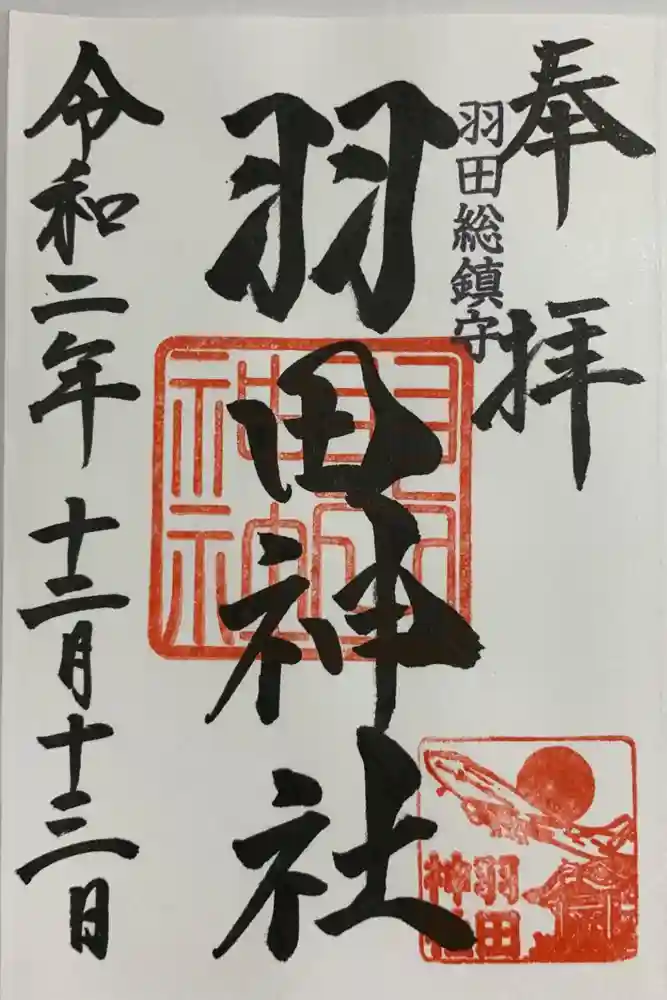 奉拝
羽田総鎮守
羽田神社
令和二年十二月十三日
羽田
神社